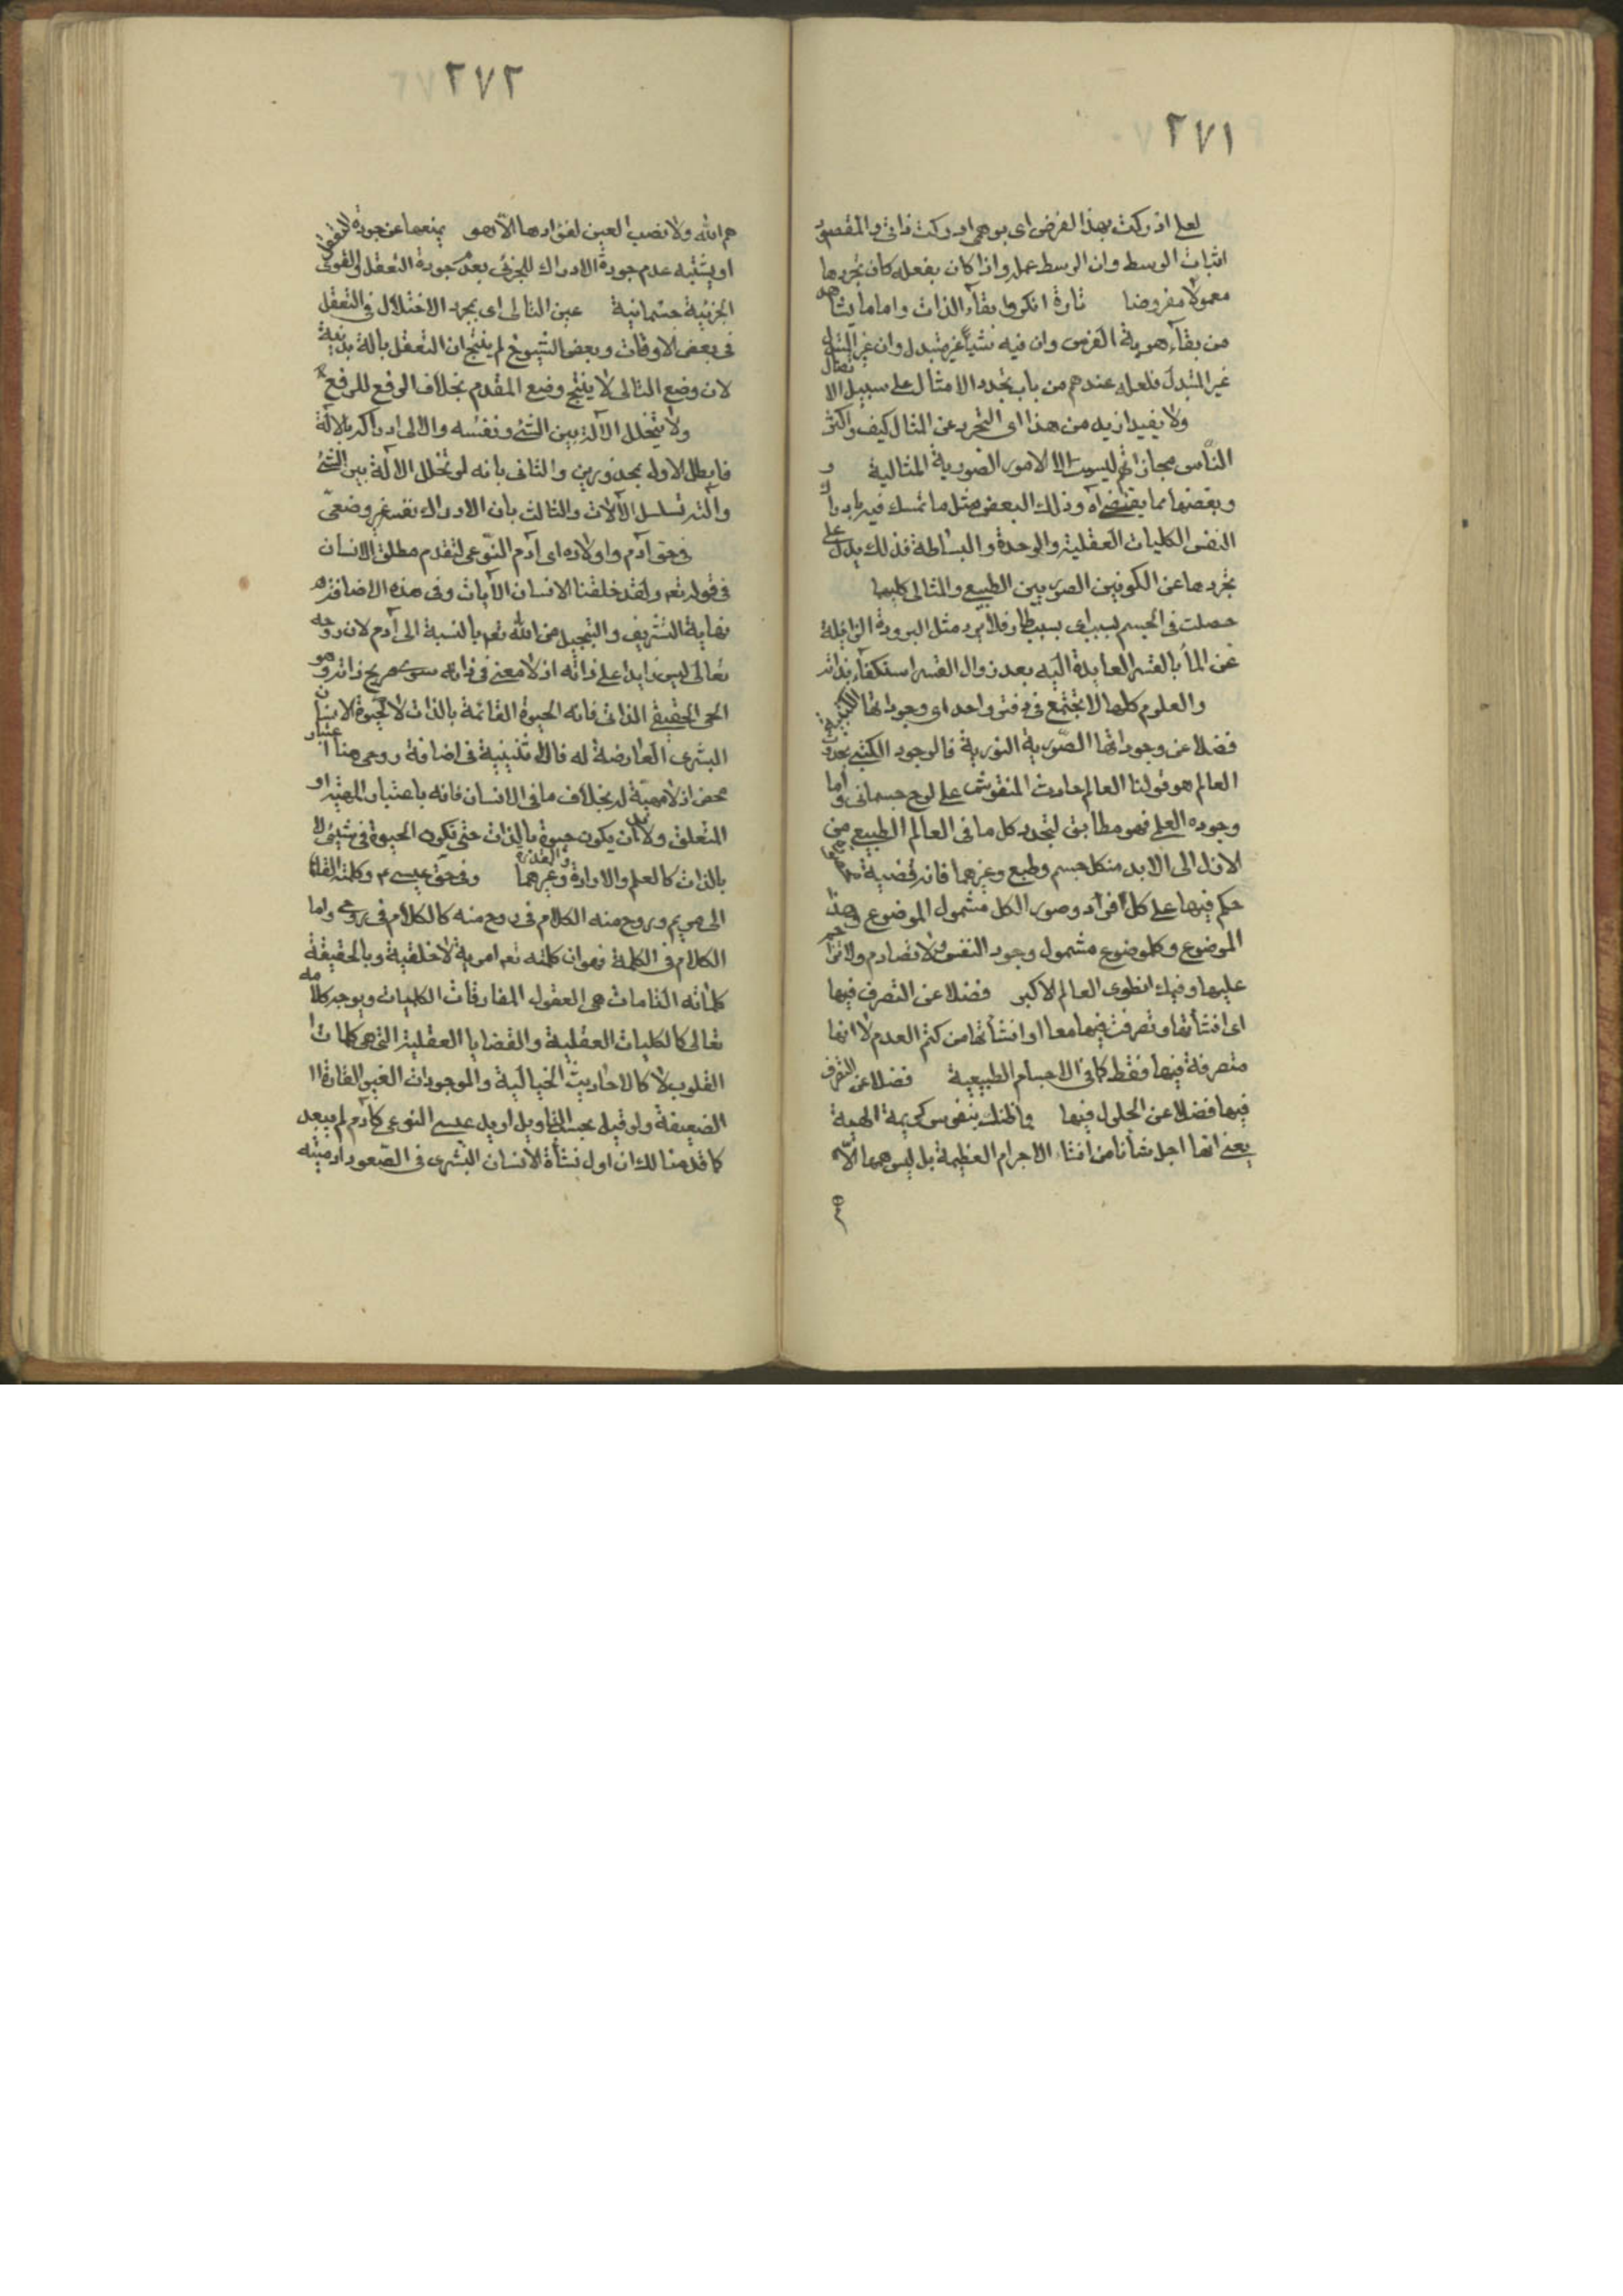 ٢٧١
لعلى ادركت بهذا الفرض اى بوهمى ادركت ذاتى والمقصود
اثبات الوسط وان الوسط عمله واذا كان بفعله كان تجردها
معمولا مفروضا تارة انكروا بقاء الذات واما ما يشاهد
من بقاء هوية الفرس وان فيه شيئا غير متبدل وان غير المتبدل
غير المتبدل فلعله عندهم من باب تجدد الامثال على سبيل الاتصال
ولا يفيد ازيد من هذا اى التجرد عن المثال كيف واكثر
الناس مجازاتهم ليست الا الامور الصورية المثالية و
وبعضها مما يقتضى اه وذلك البعض مثل ما تمسك فيه بادراك
النفس الكليات العقلية والوحدة والبساطة فذلك يدل على
تجردها عن الكونين الصوريين الطبيعى والمثالى كليهما
حصلت فى الجسم لسبب اى بسبب طار فلا يرد مثل البرودة الزايلة
عن الماء بالقسر العايدة اليه بعد زوال القسر استكفاء بذاته
والعلوم كلها لا تجتمع فى دفتر واحد اى وجوداتها الكتبية
فضلا عن وجوداتها الصورية النورية فالوجود الكتبى لحدوث
العالم هو قولنا العالم حادث المنقوش على لوح جسمانى واما
وجوده العلمى فهو مطابق لتجدد كل ما فى العالم الطبيعى من
الازل الى الابد من كل جسم وطبع وغيرهما فانه قضية
حكم فيها على كل افراد وصور الكل مشمول الموضوع وهذا
الموضوع وكل موضوع مشمول وجود النفس ولا تصادم ولا تزاحم
عليها وفيك انطوى العالم الاكبر فضلا عن التصرف فيها
اى انشأتها وتصرفت فيها معا او انشأتها من كتم العدم لا انها
متصرفة فيها فقط كما فى الاجسام الطبيعية فضلا عن التصرف
فيها فضلا عن الحلول فيها فما ظنك بنفوس كريمة الهية
يعنى انها اجل شأنا من انشاء الاجرام العظيمة بل ليس همها الا
٢٧٢
هم الله ولا نصب العين لفؤادها الا هو يمنعها عن جودة التعقل
او يشتبه عدم جودة الادراك للجزئى بعدم جودة التعقل او القوى
الجزئية جسمانية عين التالى اى بمجرد الاختلال فى التعقل
فى بعض الاوقات وبعض الشيوخ لم ينتج ان التعقل بالة بدنية
لان وضع التالى لا ينتج وضع المقدم بخلاف الرفع للرفع
ولا يتخلل الآلة بين الشئ ونفسه والآلى ادراكه بالآلة
فابطل الاول بمحذورين والثانى بانه لو تخلل الآلة بين الشئ
وآلته تسلسل الآلات والثالث بان الادراك نفسه غير وضعى
فى حق آدم واولاده اى آدم النوعى لتقدم مطلق الانسان
فى قوله تعه ولقد خلقنا الانسان الآيات وفى هذه الاضافة
نهاية التشريف والتبجيل من الله تعه بالنسبة الى آدم لان روحه
تعالى ليس زايدا على ذاته اذ لا معنى فى ذاته سوى صريح ذاته وهو
الحى الحقيقى الذاتى فانه الحيوة القائمة بالذات لا كحيوة الانسان
البشرى العارضة له فالاثنينية فى اضافة روحى هنا اعتبار
محض اذ لا مهية له بخلاف ما فى الانسان فانه باعتبار المهية او
المتعلق ولا بد ان يكون حيوة بالذات حتى تكون الحيوة فى شئ لا
بالذات كالعلم والارادة والقدرة وغيرهما وفى حق عيسى ع وكلمته القاها
الى مريم وروح منه الكلام فى روح منه كالكلام فى روحى واما
الكلام فى الكلمة فهو ان كلمته تعه امرية لا خلقية وبالحقيقة
كلماته التامات هى العقول المفارقات الكليات ويوجد كلامه
تعالى كالكليات العقلية والقضايا العقلية التى هى كلمات
القلوب لا كالاحاديث الخيالية والموجودات الغير القارة
الضعيفة ولو قيل بحسب التاويل اويل عيسى النوعى كآدم لم يبعد
كما قدمنا لك ان اول نشأة الانسان البشرى فى الصعود آدميته